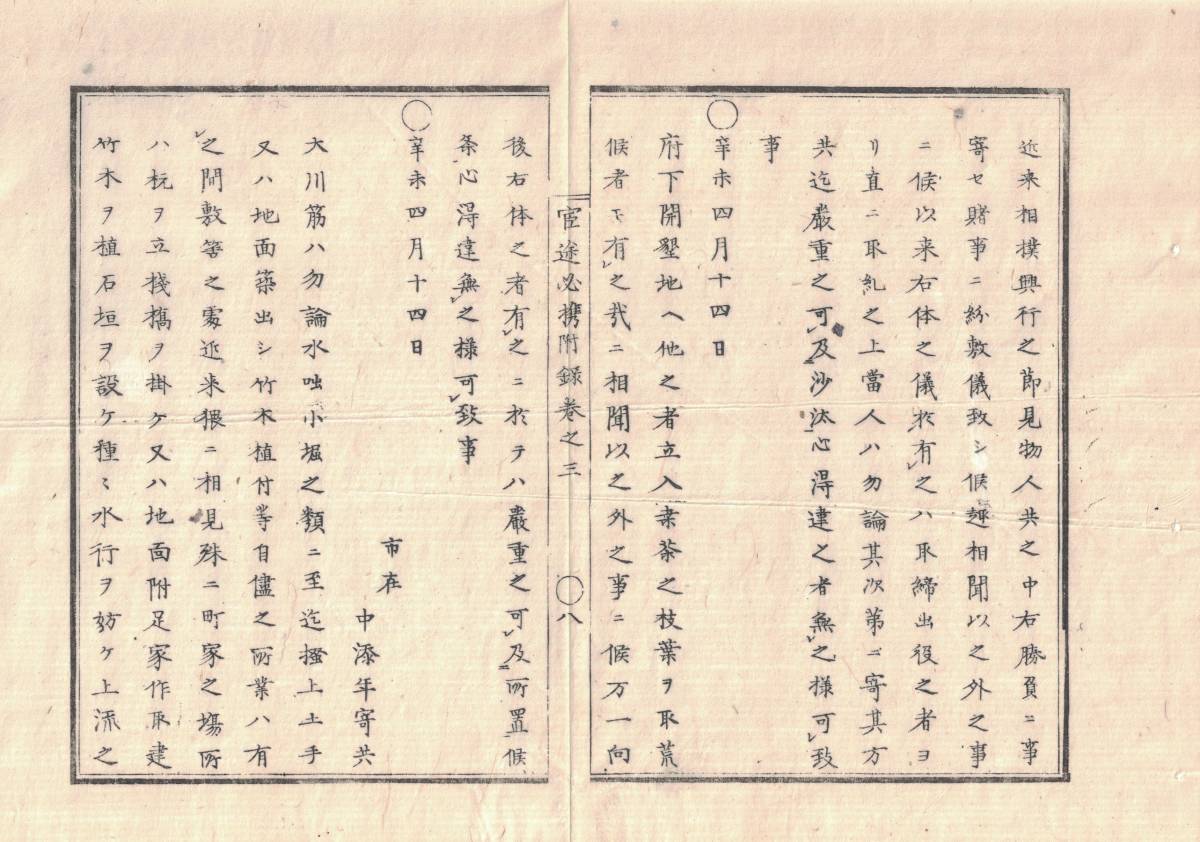 近来相撲興行之節見物人共之中右勝負ニ事
寄セ賭事ニ紛敷儀致シ候趣相聞以之外之事
ニ候以来右体之儀於有之ハ取締出役之者ヨ
リ直ニ取糺之上當人ハ勿論其次第ニ寄其方
共迄厳重之可及沙汰心得違之者無之様可致
事
〇辛未四月十四日
府下開墾地ヘ他之者立入桑茶之枝葉ヲ取荒
候者モ有之哉ニ相聞以之外之事ニ候万一向
宦途必携附録巻之三 〇八
後右体之者有之ニ於テハ厳重之可及所置候
条心得違無之様可致事
〇辛未四月十四日
市在
中添年寄共
大川筋ハ勿論水吐小堀之類ニ至迄掻上土手
又ハ地面築出シ竹木植付等自儘之所業ハ有
之間敷筈之處近来猥ニ相見殊ニ町家之場所
ハ杭ヲ立桟橋ヲ掛ケ又ハ地面附足家作取建
竹木ヲ植石垣ヲ設ケ種々水行ヲ妨ケ上流之